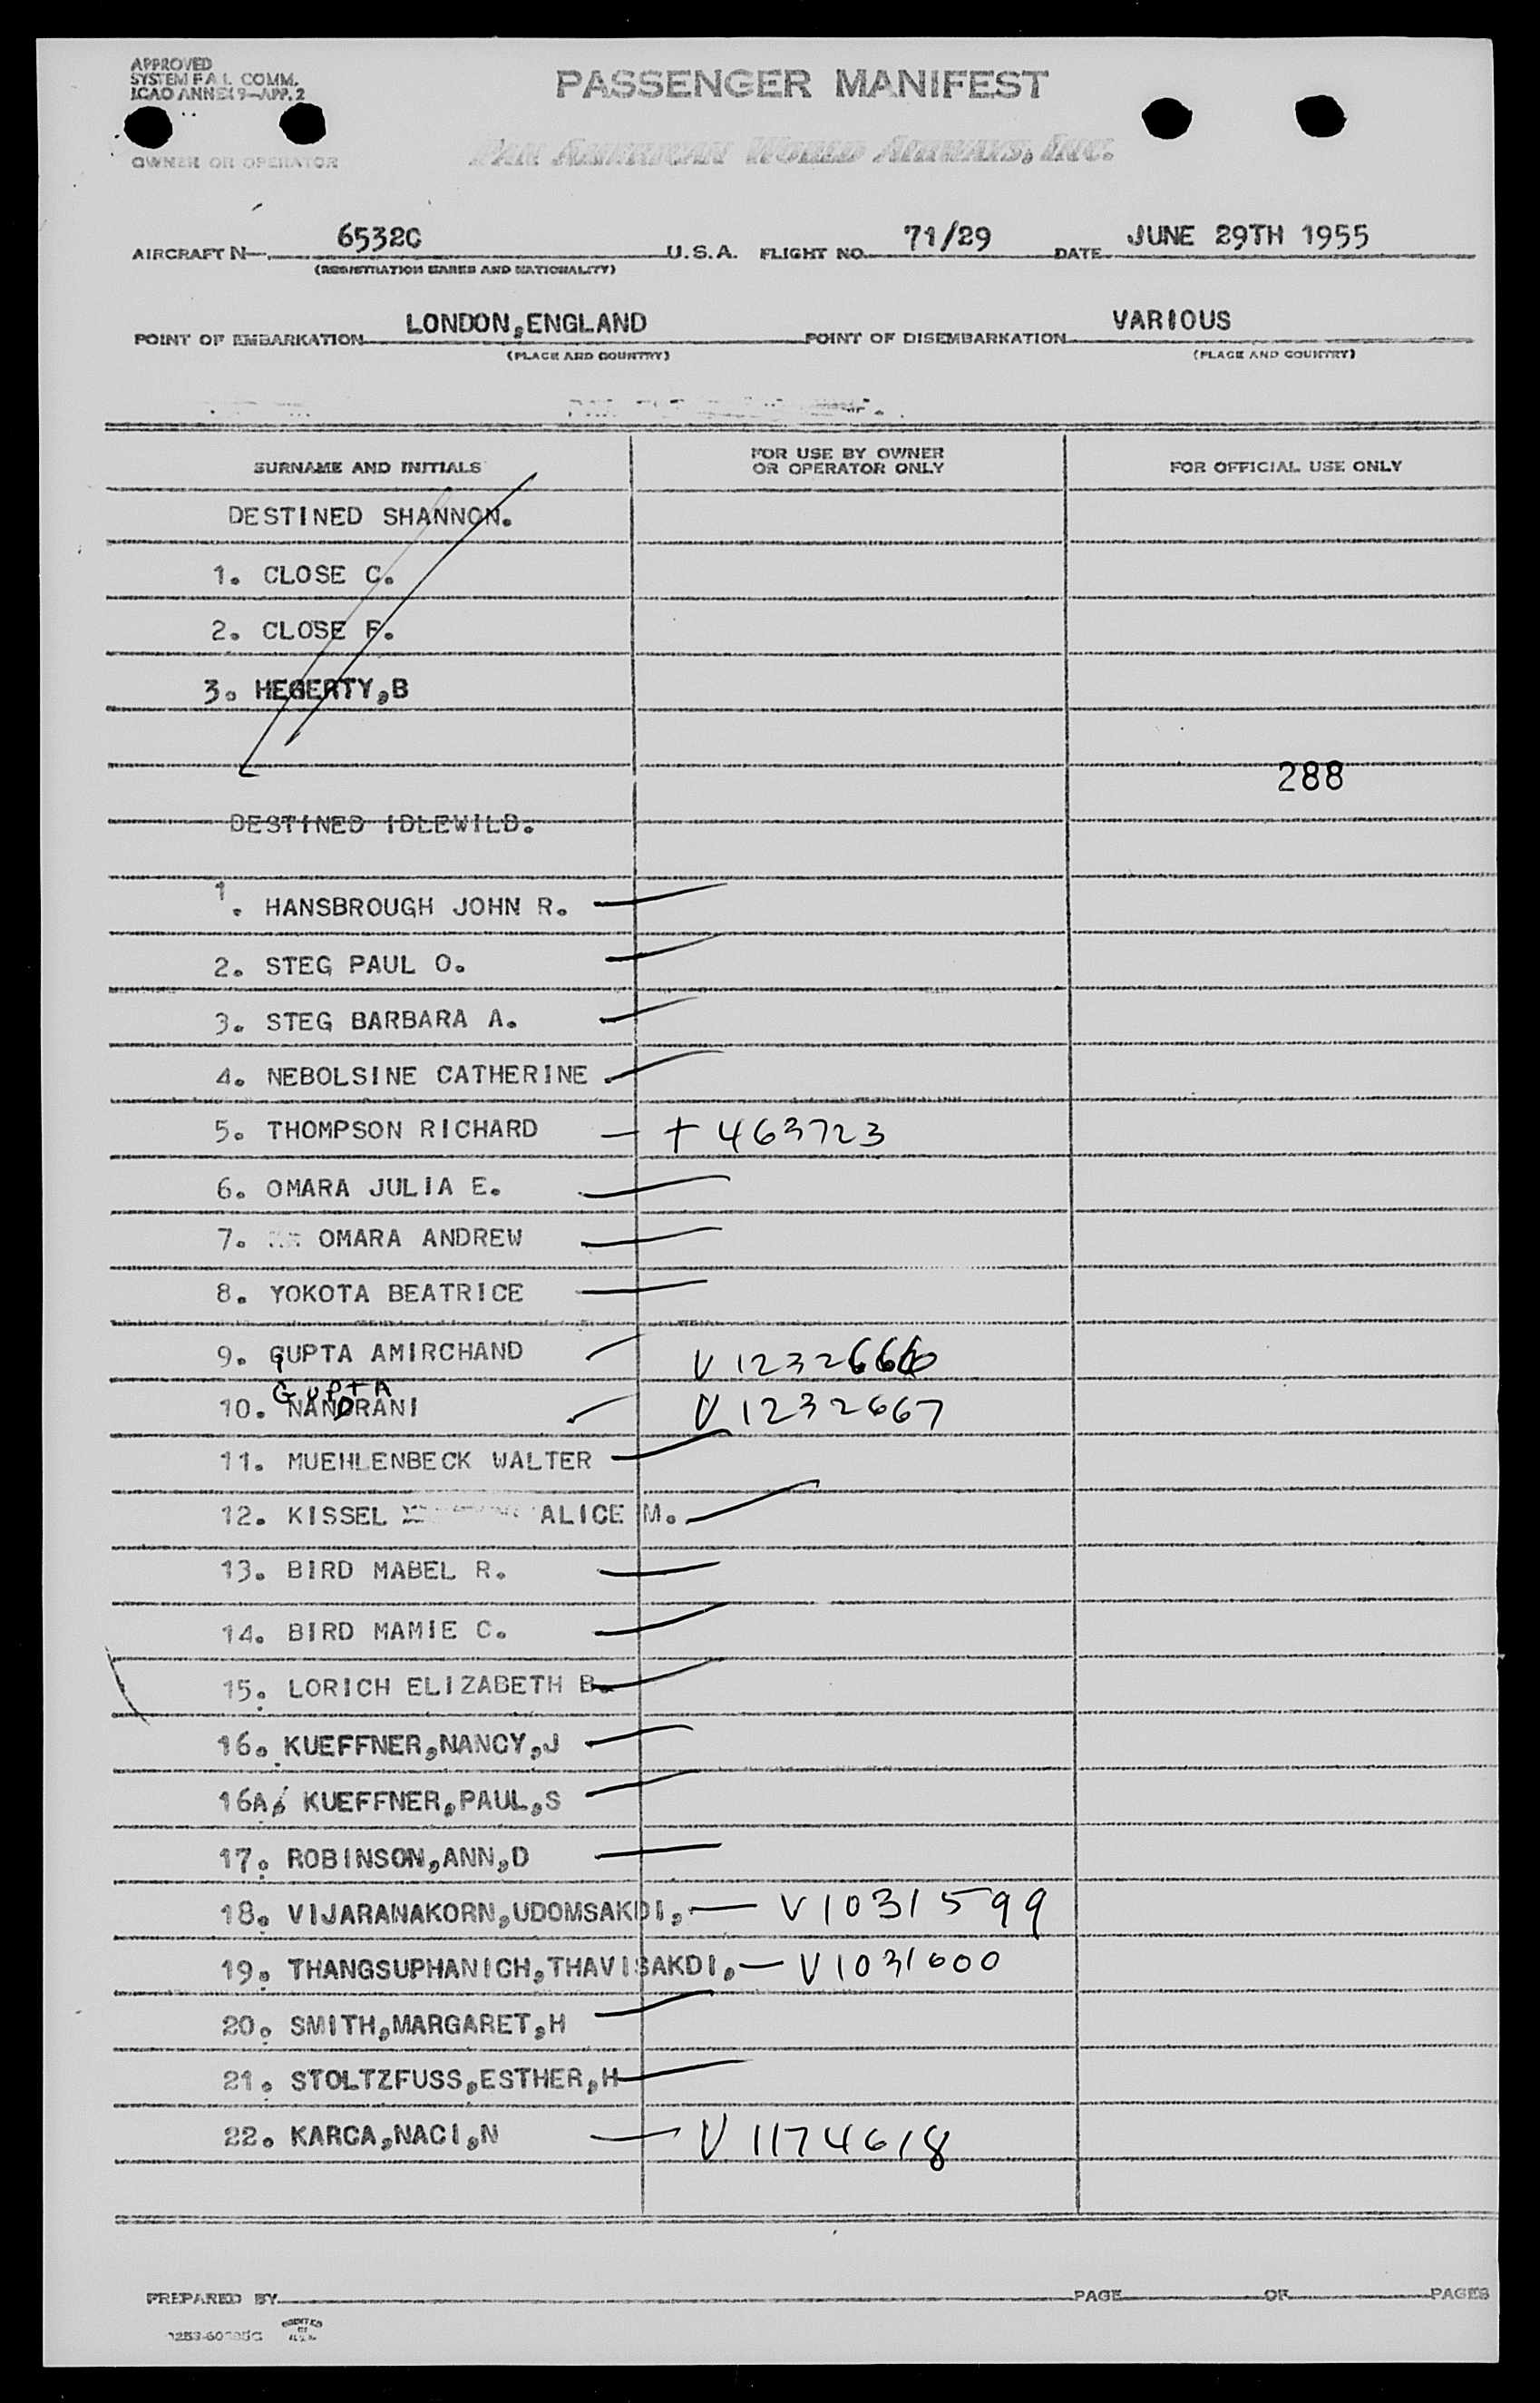 APPROVED
SYSTEM F.A.L. COMM.
ICAO ANNEX 9—APP. 2
PASSENGER MANIFEST
OWNER OR OPERATOR
PAN AMERICAN WORLD AIRWAYS, INC.
AIRCRAFT N—. 6532C U.S.A. FLIGHT NO. 71/29 DATE JUNE 29TH 1955
(REGISTRATION MARKS AND NATIONALITY)
POINT OF EMBARKATION LONDON,ENGLAND POINT OF DISEMBARKATION VARIOUS
(PLACE AND COUNTRY) (PLACE AND COUNTRY)
SURNAME AND INITIALS FOR USE BY OWNER OR OPERATOR ONLY FOR OFFICIAL USE ONLY
DESTINED SHANNON.
1. CLOSE C.
2. CLOSE F.
3. HEGERTY,B
288
DESTINED IDLEWILD.
1. HANSBROUGH JOHN R.
2. STEG PAUL O.
3. STEG BARBARA A.
4. NEBOLSINE CATHERINE
5. THOMPSON RICHARD — + 463723
6. OMARA JULIA E.
7. OMARA ANDREW
8. YOKOTA BEATRICE
9. GUPTA AMIRCHAND V 1232666
GUPTA
10. NANDRANI V 1232667
11. MUEHLENBECK WALTER
12. KISSEL ALICE M.
13. BIRD MABEL R.
14. BIRD MAMIE C.
15. LORICH ELIZABETH B.
16. KUEFFNER,NANCY,J
16A. KUEFFNER,PAUL,S
17. ROBINSON,ANN,D
18. VIJARANAKORN,UDOMSAKDI, — V 1031599
19. THANGSUPHANICH,THAVISAKDI, — V 1031600
20. SMITH,MARGARET,H
21. STOLTZFUSS,ESTHER,H
22. KARCA,NACI,N — V 1174618
PREPARED BY PAGE OF PAGES
PRINTED IN U.S.A.